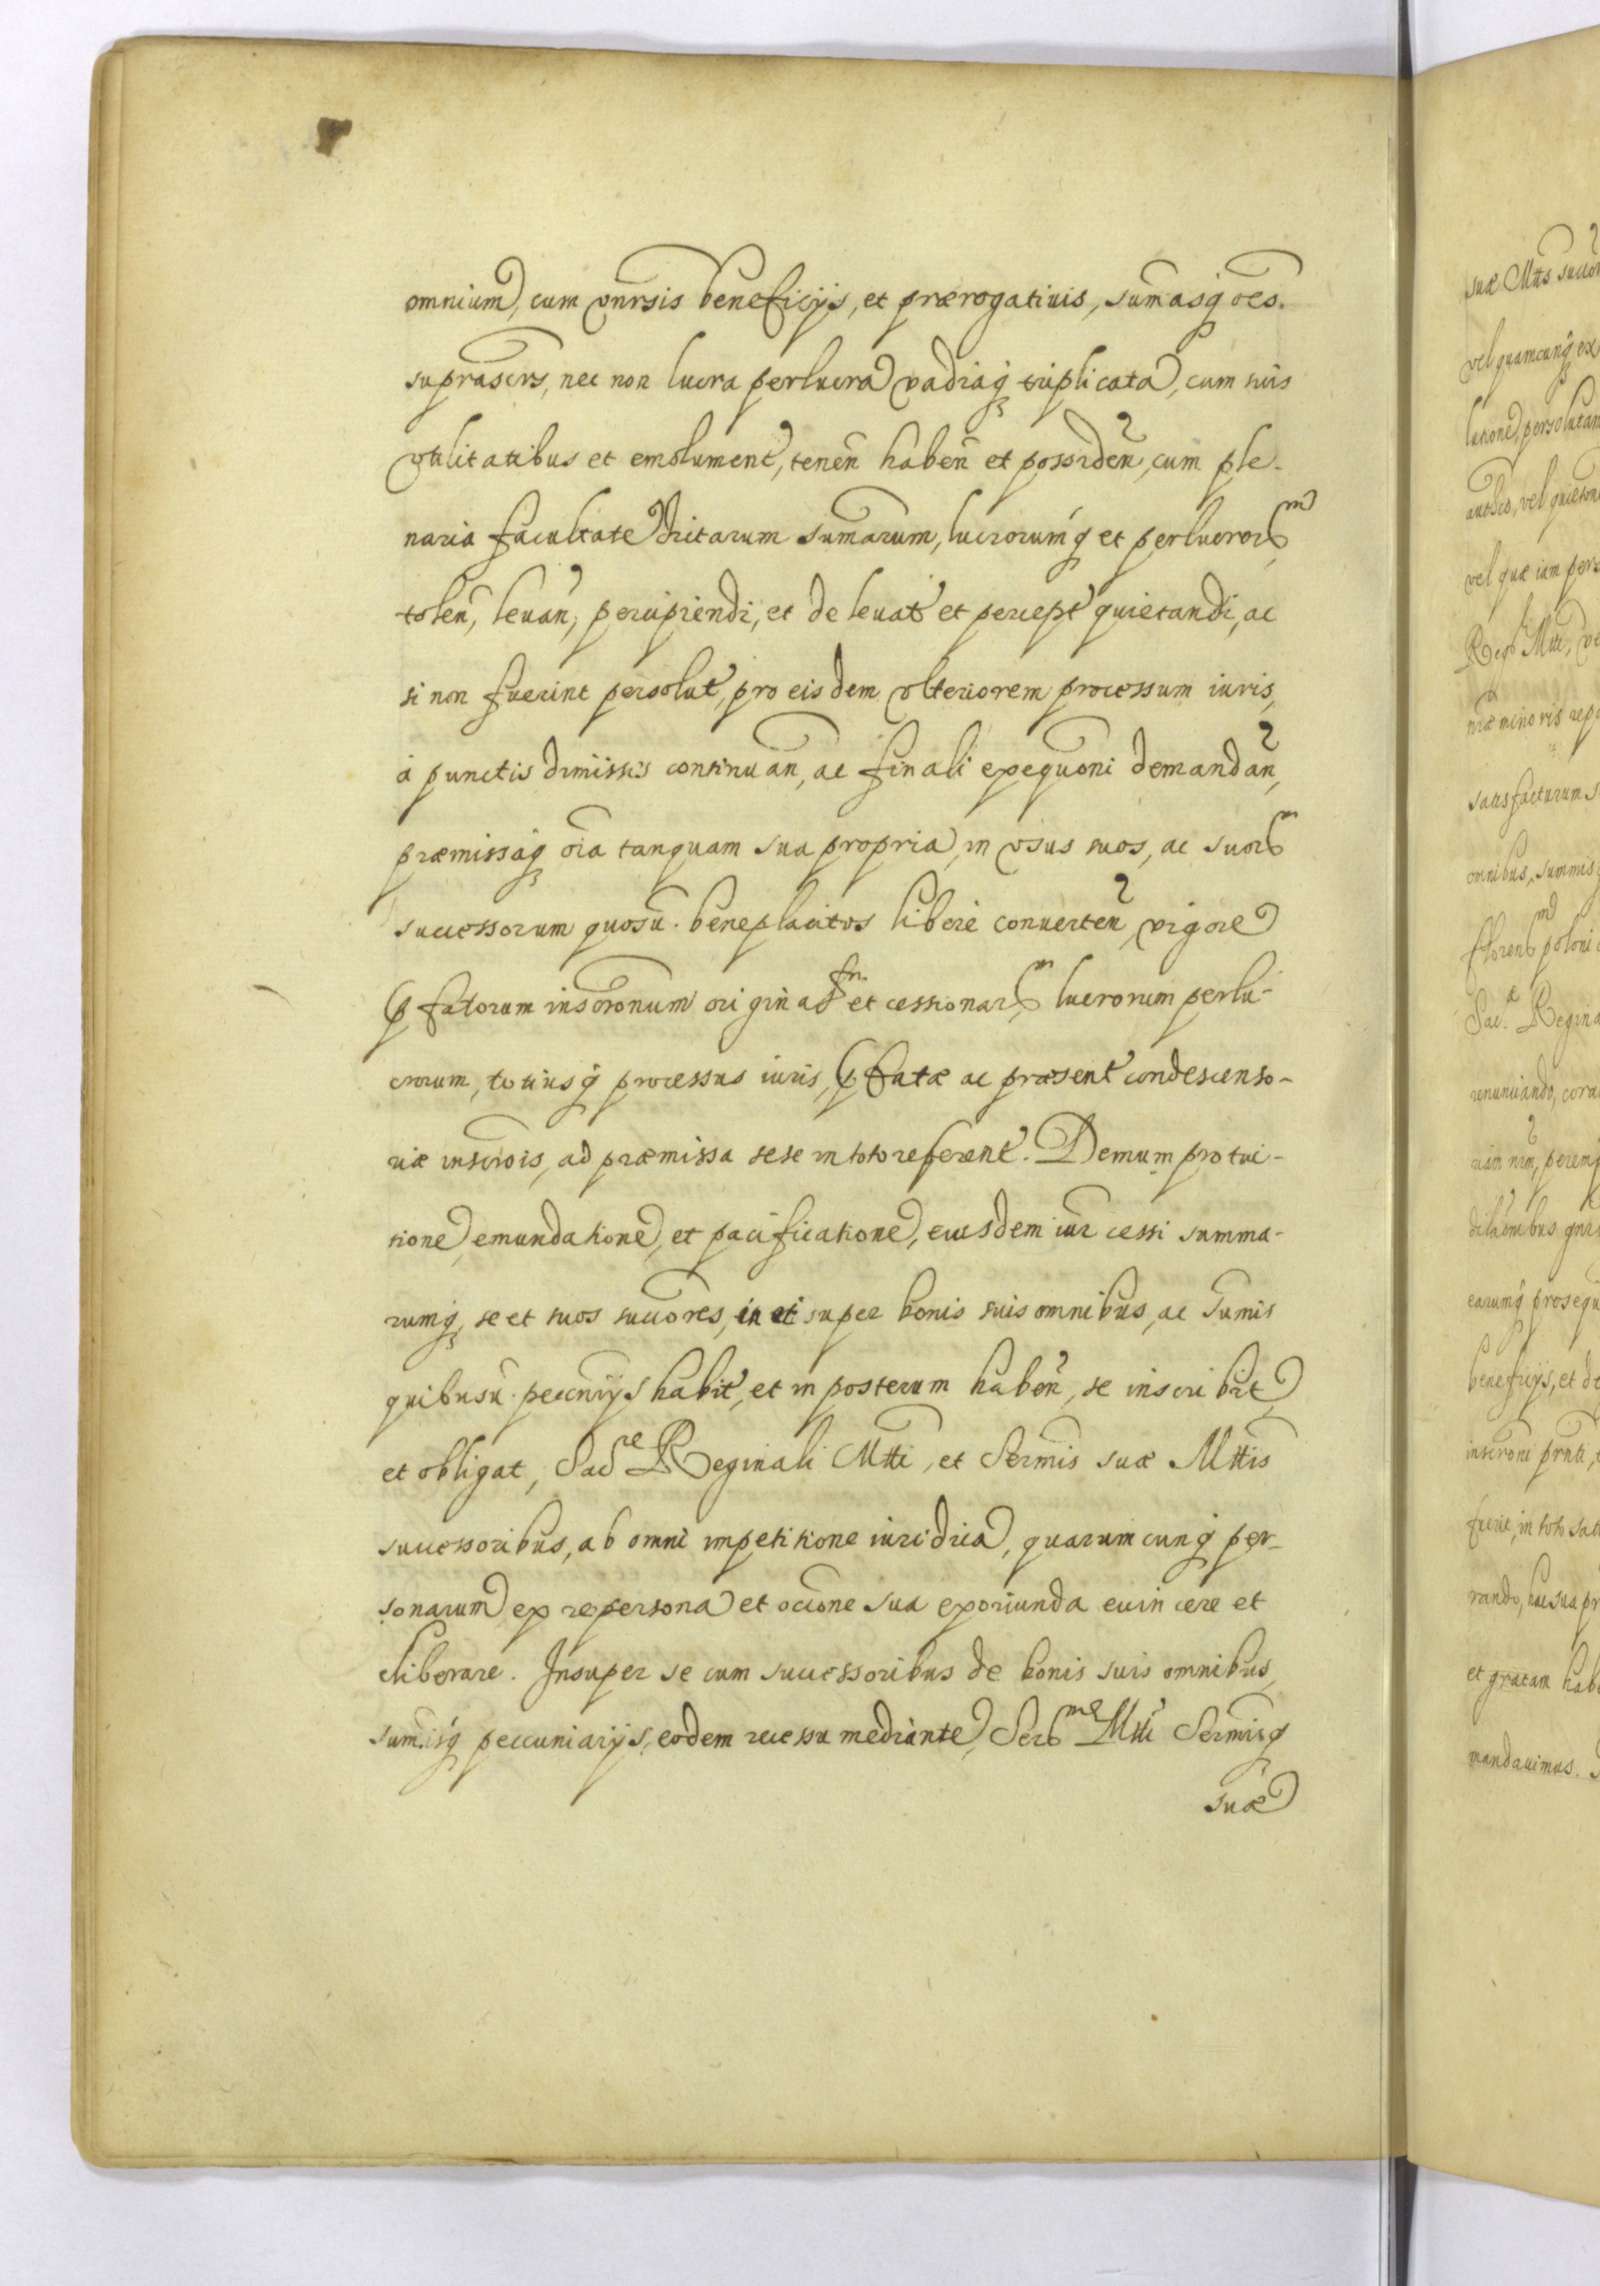 omnium, cum vnrsis beneficijs, et prærogatiuis, sumasq oes
suprascrs, nec non lucra perlucra vadiaq triplicata, cum suis
vtilitatibus et emolument, tenen haben et possiden, cum ple-
naria facultate dictarum sumarum, lucrorumq et perlucror
tolen, leuan, percipiendi, et de leuat et percept quietandi, ac
si non fuerint persolut, pro eisdem vlteriorem processum iuris,
a punctis dimissis continuan, ac finali exequoni demandan,
præmissaq oia tanquam sua propria, in vsus suos, ac suor
successorum quosu. beneplacitos libere conuerten, vigore
fatorum inscronum originat et cessionar lucrorum perlu-
crorum, totiusq processus iuris, fatæ ac præsent condescenso-
riæ inscrois, ad præmissa sese in toto referent. Demum pro tui-
tione, emundatione, et pacificatione, eiusdem iur cessi summa-
rumq, se et suos succores, in et super bonis suis omnibus, ac sumis
quibusu. peccnijs habit, et in posterum haben, se inscribit
et obligat, Sac Reginali Mtti, et Sermis suæ Mttis
successoribus, ab omni impetitione iuridica, quarumcunq per-
sonarum ex re persona et occione sua exoriunda euincere et
eliberare. Insuper se cum successoribus de bonis suis omnibus,
sumisq peccuniarijs, eodem recessu mediante, Ser Mtti Sermisq
suæ
suæ Mttis
vel quamcunq ex
latione, persolutam
vel quæ iam pers
Reg Mtti, ve
satisfacturum
omnibus, summis
floren poloni
Sac. Regina
renunciando, cora
earumq prosequ
beneficijs, et de
inscroni prnti,
fuerit, in toto sati
rando, hac sua pr
et gratam hab
mandauimus.